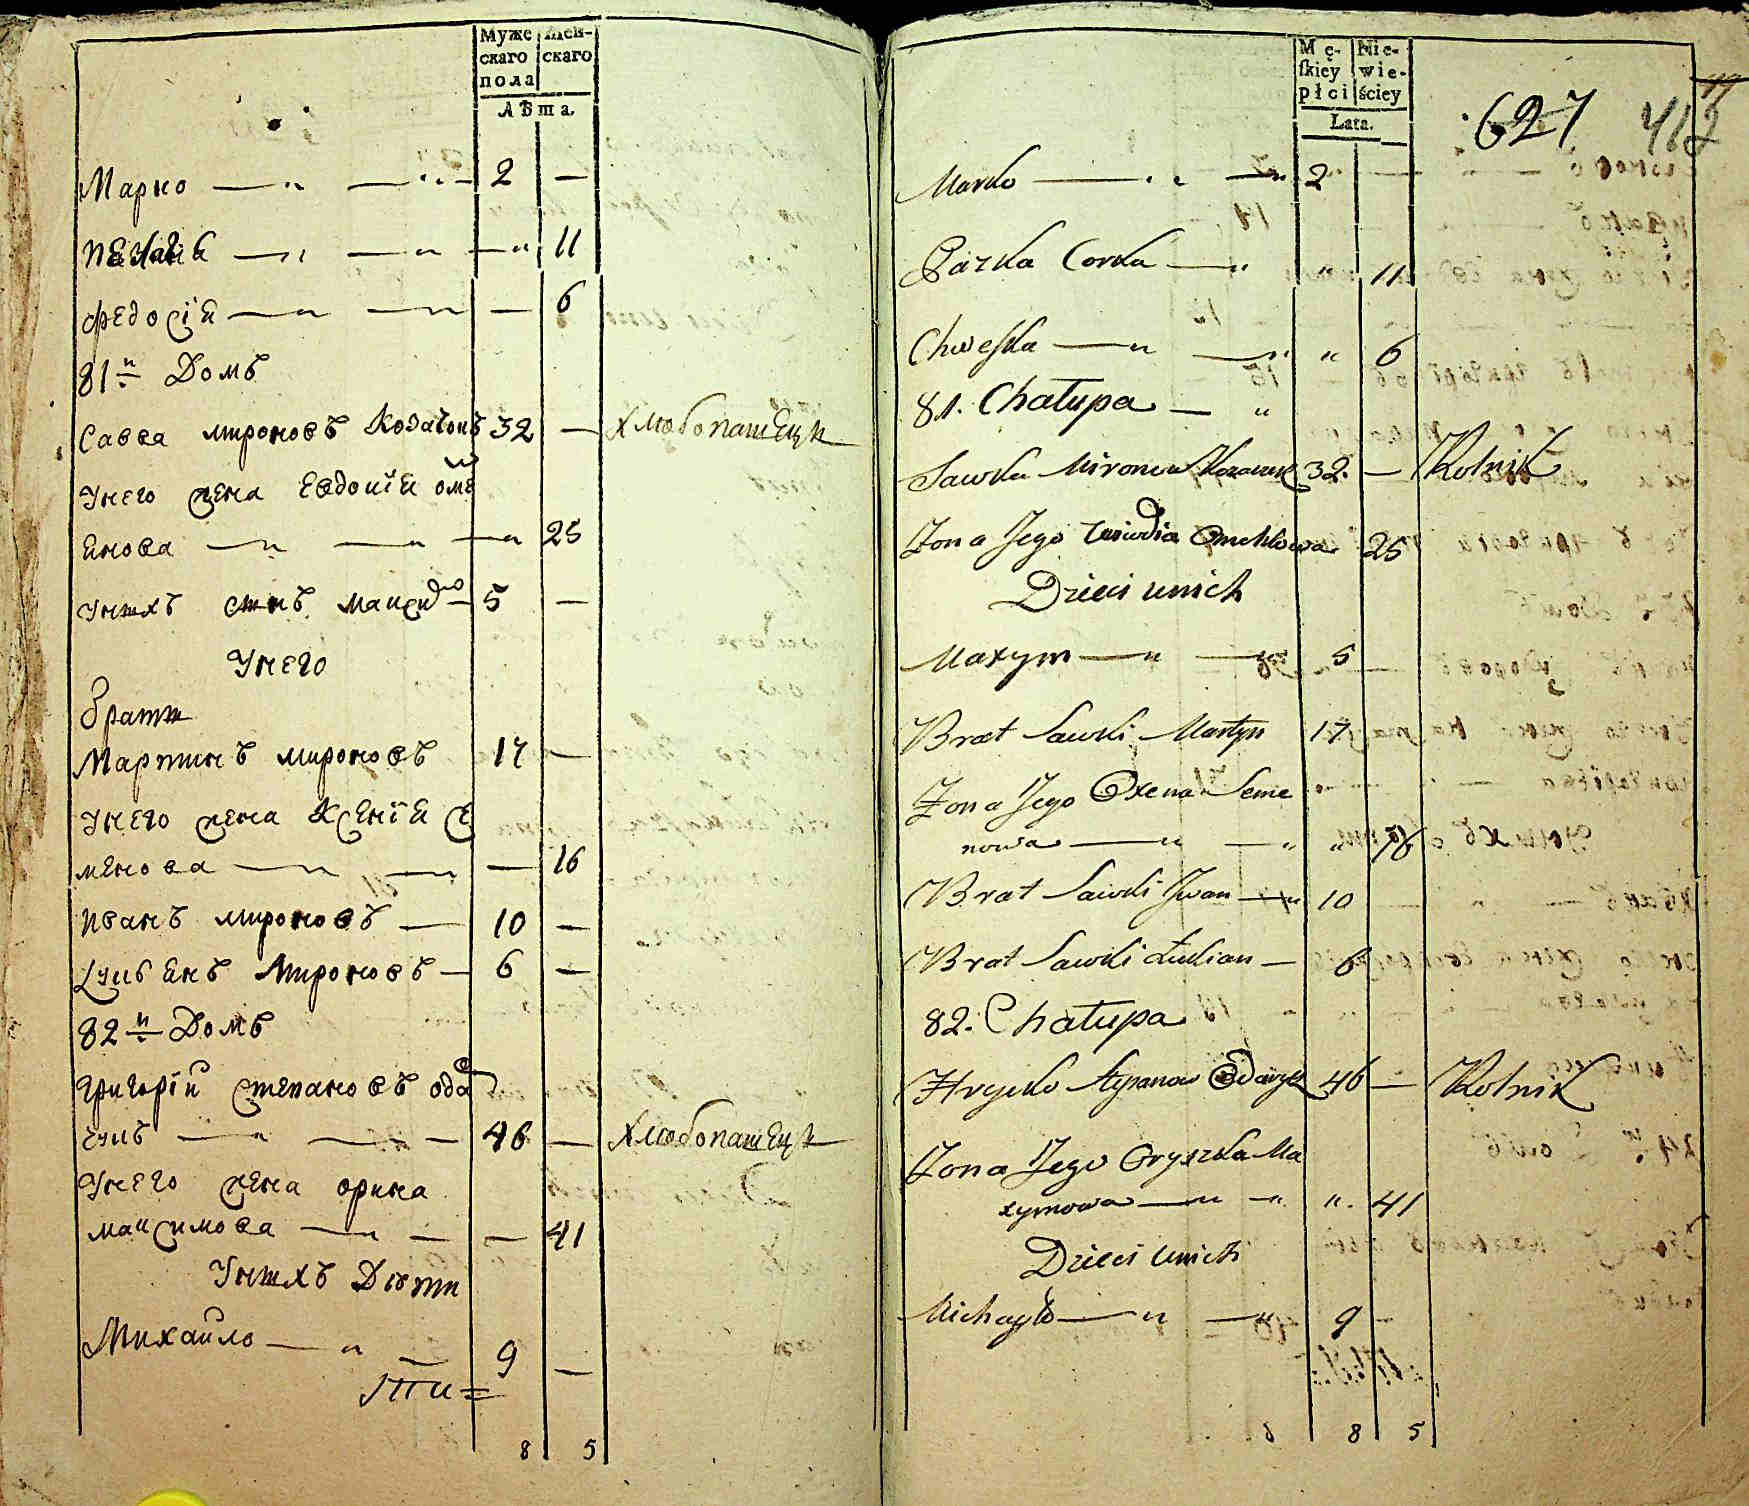 Муже
скаго
пола
Жен-
скаго
Лѣта.
Марко 2 —
Пелагѣа — 11
Федосіа — 6
81й Домъ
Савва Мироновъ Козачокъ 32 — Хлѣбопашецъ
Унего жена Евдокіа Омѣ
анова — 25
Унихъ сынъ Максимъ 5 —
Унего
Братьи
Мартинъ Мироновъ 17 —
Унего жена Ксеніа Се
менова — 16
Иванъ Мироновъ — 10 —
Лукіанъ Мироновъ — 6 —
82й Домъ
Григорій Степановъ Ода
46 — Хлѣбопашецъ
Унего жена Орина
Максимова — 41
Унихъ Дѣти
Михайло 9 —
8 5
Mę-
ſkiey
płci
Nie-
wie-
ściey
Lata.
627
Marko 2
Parzka Corka " 11
Chweſka " 6
81. Chałupa — "
Sawka Mironow Kozaczek 32. — Rolnik
Zona Jego 25
Dzieci unich
Maxym 5
Brat Sawki Martyn 17
Zona Jego Oxena Seme
nowa " 16
Brat Sawki Jwan 10
Brat Sawki Łukian — 6
82. Chałupa
Hrycko Stepanow 46 — Rolnik
Zona Jego Oryszka Ma
xymowa ". 41
Dzieci unich
Michayło 9 -
8 5